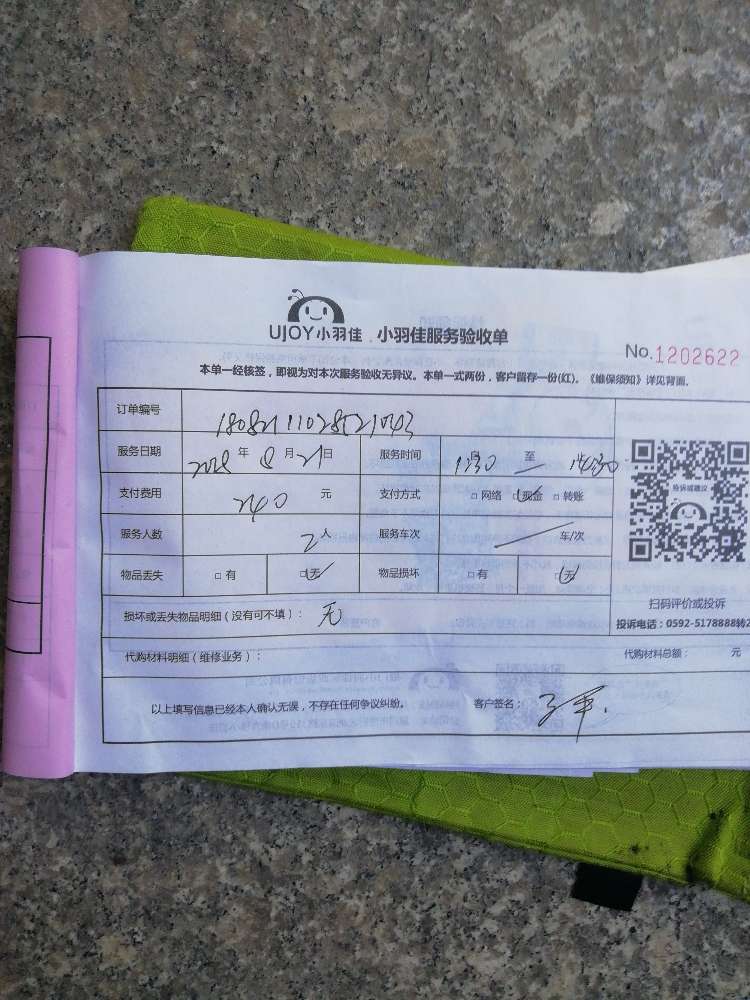 UJOY小羽佳 小羽佳服务验收单
No.1202622
本单一经核签，即视为对本次服务验收无异议。本单一式两份，客户留存一份(红)。《维保须知》详见背面。
订单编号
服务日期 2018 年 8 月 21 日 服务时间 自 至 14:30
支付费用 240 元 支付方式 □网络 □现金 □转账
服务人数 2人 服务车次 车/次
物品丢失 □有 □无 物品损坏 □有 □无
投诉或建议
扫码评价或投诉
损坏或丢失物品明细（没有可不填）： 无
投诉电话：0592-5178888转2
代购材料明细（维修业务）： 代购材料总额： 元
以上填写信息已经本人确认无误，不存在任何争议纠纷。 客户签名：